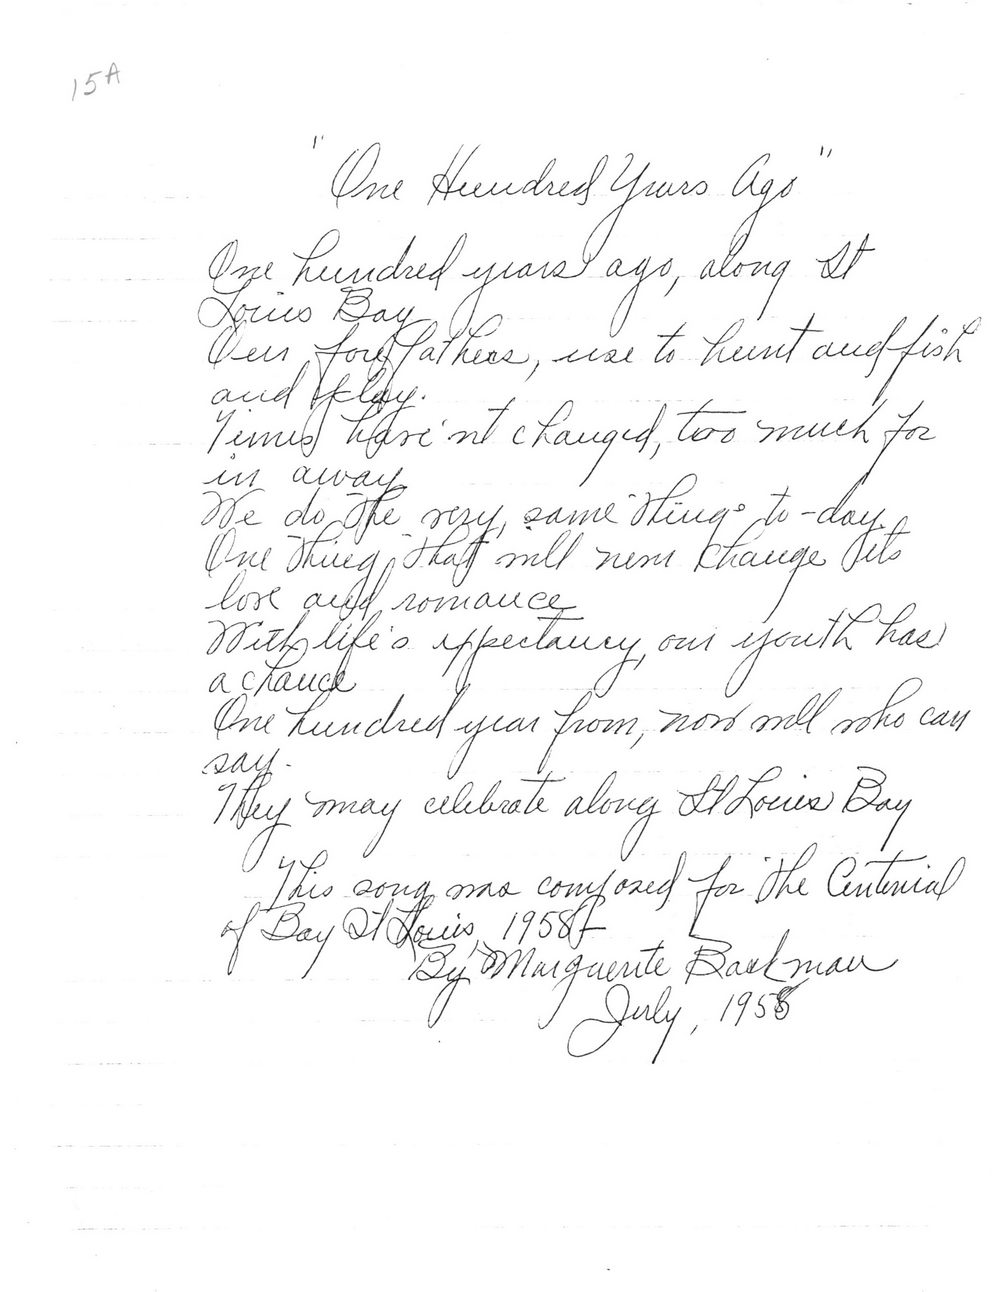 15A
"One Hundred Years Ago"
One hundred years ago, along St
Louis Bay
Our forefathers, use to hunt and fish
and play.
Times have'nt changed, too much for
in away
We do the very, same things to-day.
One thing that will never change its
love and romance
With life's expectancy, our youth has
a chance
One hundred year from, now will who can
say.
They may celebrate along St Louis Bay
This song was composed for the Centenial
of Bay St Louis, 1958
By Marguerite
July, 1958